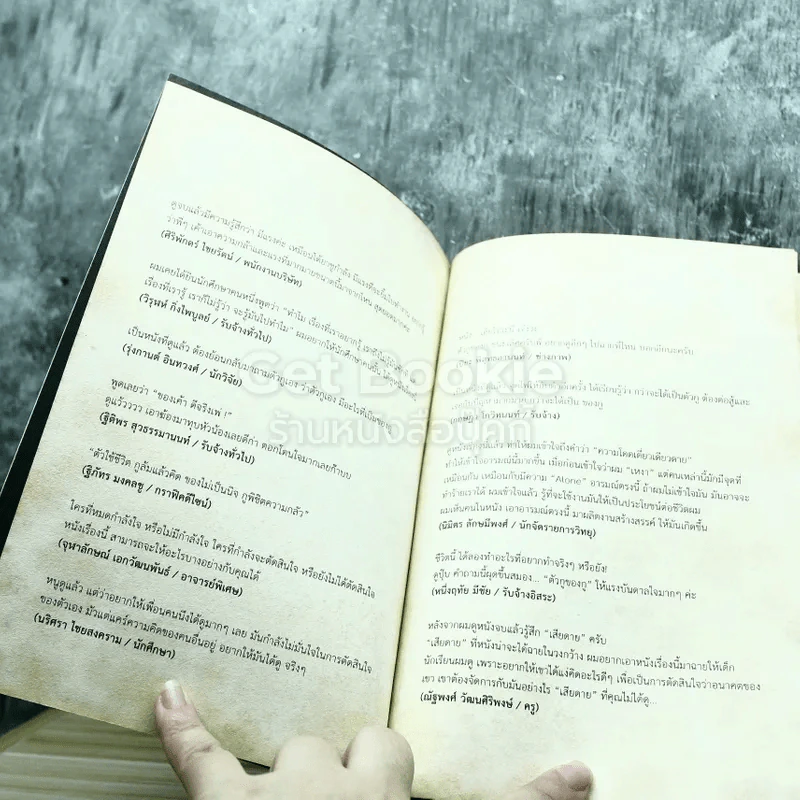 ดูจบแล้วมีความรู้สึกว่า มีแรงค่ะ เหมือนได้ยาชูกำลัง มีแรงที่จะ
ว่าพี่ๆ เค้าเอาความกล้าและแรงที่มากมายขนาดนี้มาจากไหน
(ศิริพักตร์ ไชยรัตน์ / พนักงานบริษัท)
ผมเคยได้ยินนักศึกษาคนหนึ่งพูดว่า "ทำไม เรื่องที่เราอยากรู้
เรื่องที่เรารู้ เราก็ไม่รู้ว่า จะรู้มันไปทำไม" ผมอยากให้นักศึกษาคนนั้น
(วิรุฬห์ กิ่งไพบูลย์ / รับจ้างทั่วไป)
เป็นหนังที่ดูแล้ว ต้องย้อนกลับมาถามตัวกูเอง ว่าตัวกูเอง มีอะไรที่เป็นของ
(รุ่งกานต์ อินทวงศ์ / นักวิจัย)
พูดเลยว่า "ของเค้า ดีจริงเพ่ !"
ดูแร้วววว เอาฆ้องมาทุบหัวน้องเลยดีก่า ตอกโดนใจมากเลยก๊าบบ
(ฐิติพร สุวธรรมานนท์ / รับจ้างทั่วไป)
"ตัวใช้ชีวิต กูล้มแล้วคิด ของไม่เป็นนิจ ภูพิชิตความกลัว"
(ฐิภัทร มงคลชู / กราฟิคดีไซน์)
ใครที่หมดกำลังใจ หรือไม่มีกำลังใจ ใครที่กำลังจะตัดสินใจ หรือยังไม่ได้ตัดสินใจ
หนังเรื่องนี้ สามารถจะให้อะไรบางอย่างกับคุณได้
(จุฬาลักษณ์ เอกวัฒนพันธ์ / อาจารย์พิเศษ)
หนูดูแล้ว แต่ว่าอยากให้เพื่อนคนนึงได้ดูมากๆ เลย มันกำลังไม่มั่นใจในการตัดสินใจ
ของตัวเอง มัวแต่แคร์ความคิดของคนอื่นอยู่ อยากให้มันได้ดู จริงๆ
(นริศรา ไชยสงคราม / นักศึกษา)
/ ช่างภาพ)
ได้เรียนรู้ว่า กว่าจะได้เป็นตัวกู ต้องต่อสู้และ
ของกู
โกวิทนนท์ / รับจ้าง)
ทำให้ผมเข้าใจถึงคำว่า "ความโดดเดี่ยวเดียวดาย"
ทำให้เข้าใจอารมณ์นี้มากขึ้น เมื่อก่อนเข้าใจว่าผม "เหงา" แต่คนเหล่านี้มักมีจุดที่
เหมือนกัน เหมือนกับมีความ "Alone" อารมณ์ตรงนี้ ถ้าผมไม่เข้าใจมัน มันอาจจะ
ทำร้ายเราได้ ผมเข้าใจแล้ว รู้ที่จะใช้งานมันให้เป็นประโยชน์ต่อชีวิตผม
ผมเห็นคนในหนัง เอาอารมณ์ตรงนี้ มาผลิตงานสร้างสรรค์ ให้มันเกิดขึ้น
(นิมิตร ลักษมีพงศ์ / นักจัดรายการวิทยุ)
ชีวิตนี้ ได้ลองทำอะไรที่อยากทำจริงๆ หรือยัง!
ดูปุ๊บ คำถามนี้ผุดขึ้นสมอง... "ตัวกูของกู" ให้แรงบันดาลใจมากๆ ค่ะ
(หนึ่งฤทัย มีชัย / รับจ้างอิสระ)
หลังจากผมดูหนังจบแล้วรู้สึก "เสียดาย" ครับ
"เสียดาย" ที่หนังน่าจะได้ฉายในวงกว้าง ผมอยากเอาหนังเรื่องนี้มาฉายให้เด็ก
นักเรียนผมดู เพราะอยากให้เขาได้แง่คิดอะไรดีๆ เพื่อเป็นการตัดสินใจว่าอนาคตของ
เขา เขาต้องจัดการกับมันอย่างไร "เสียดาย" ที่คุณไม่ได้ดู...
(ณัฐพงศ์ วัฒนศิริพงษ์ / ครู)
Get Bookie
ร้านหนังสือเก็ท